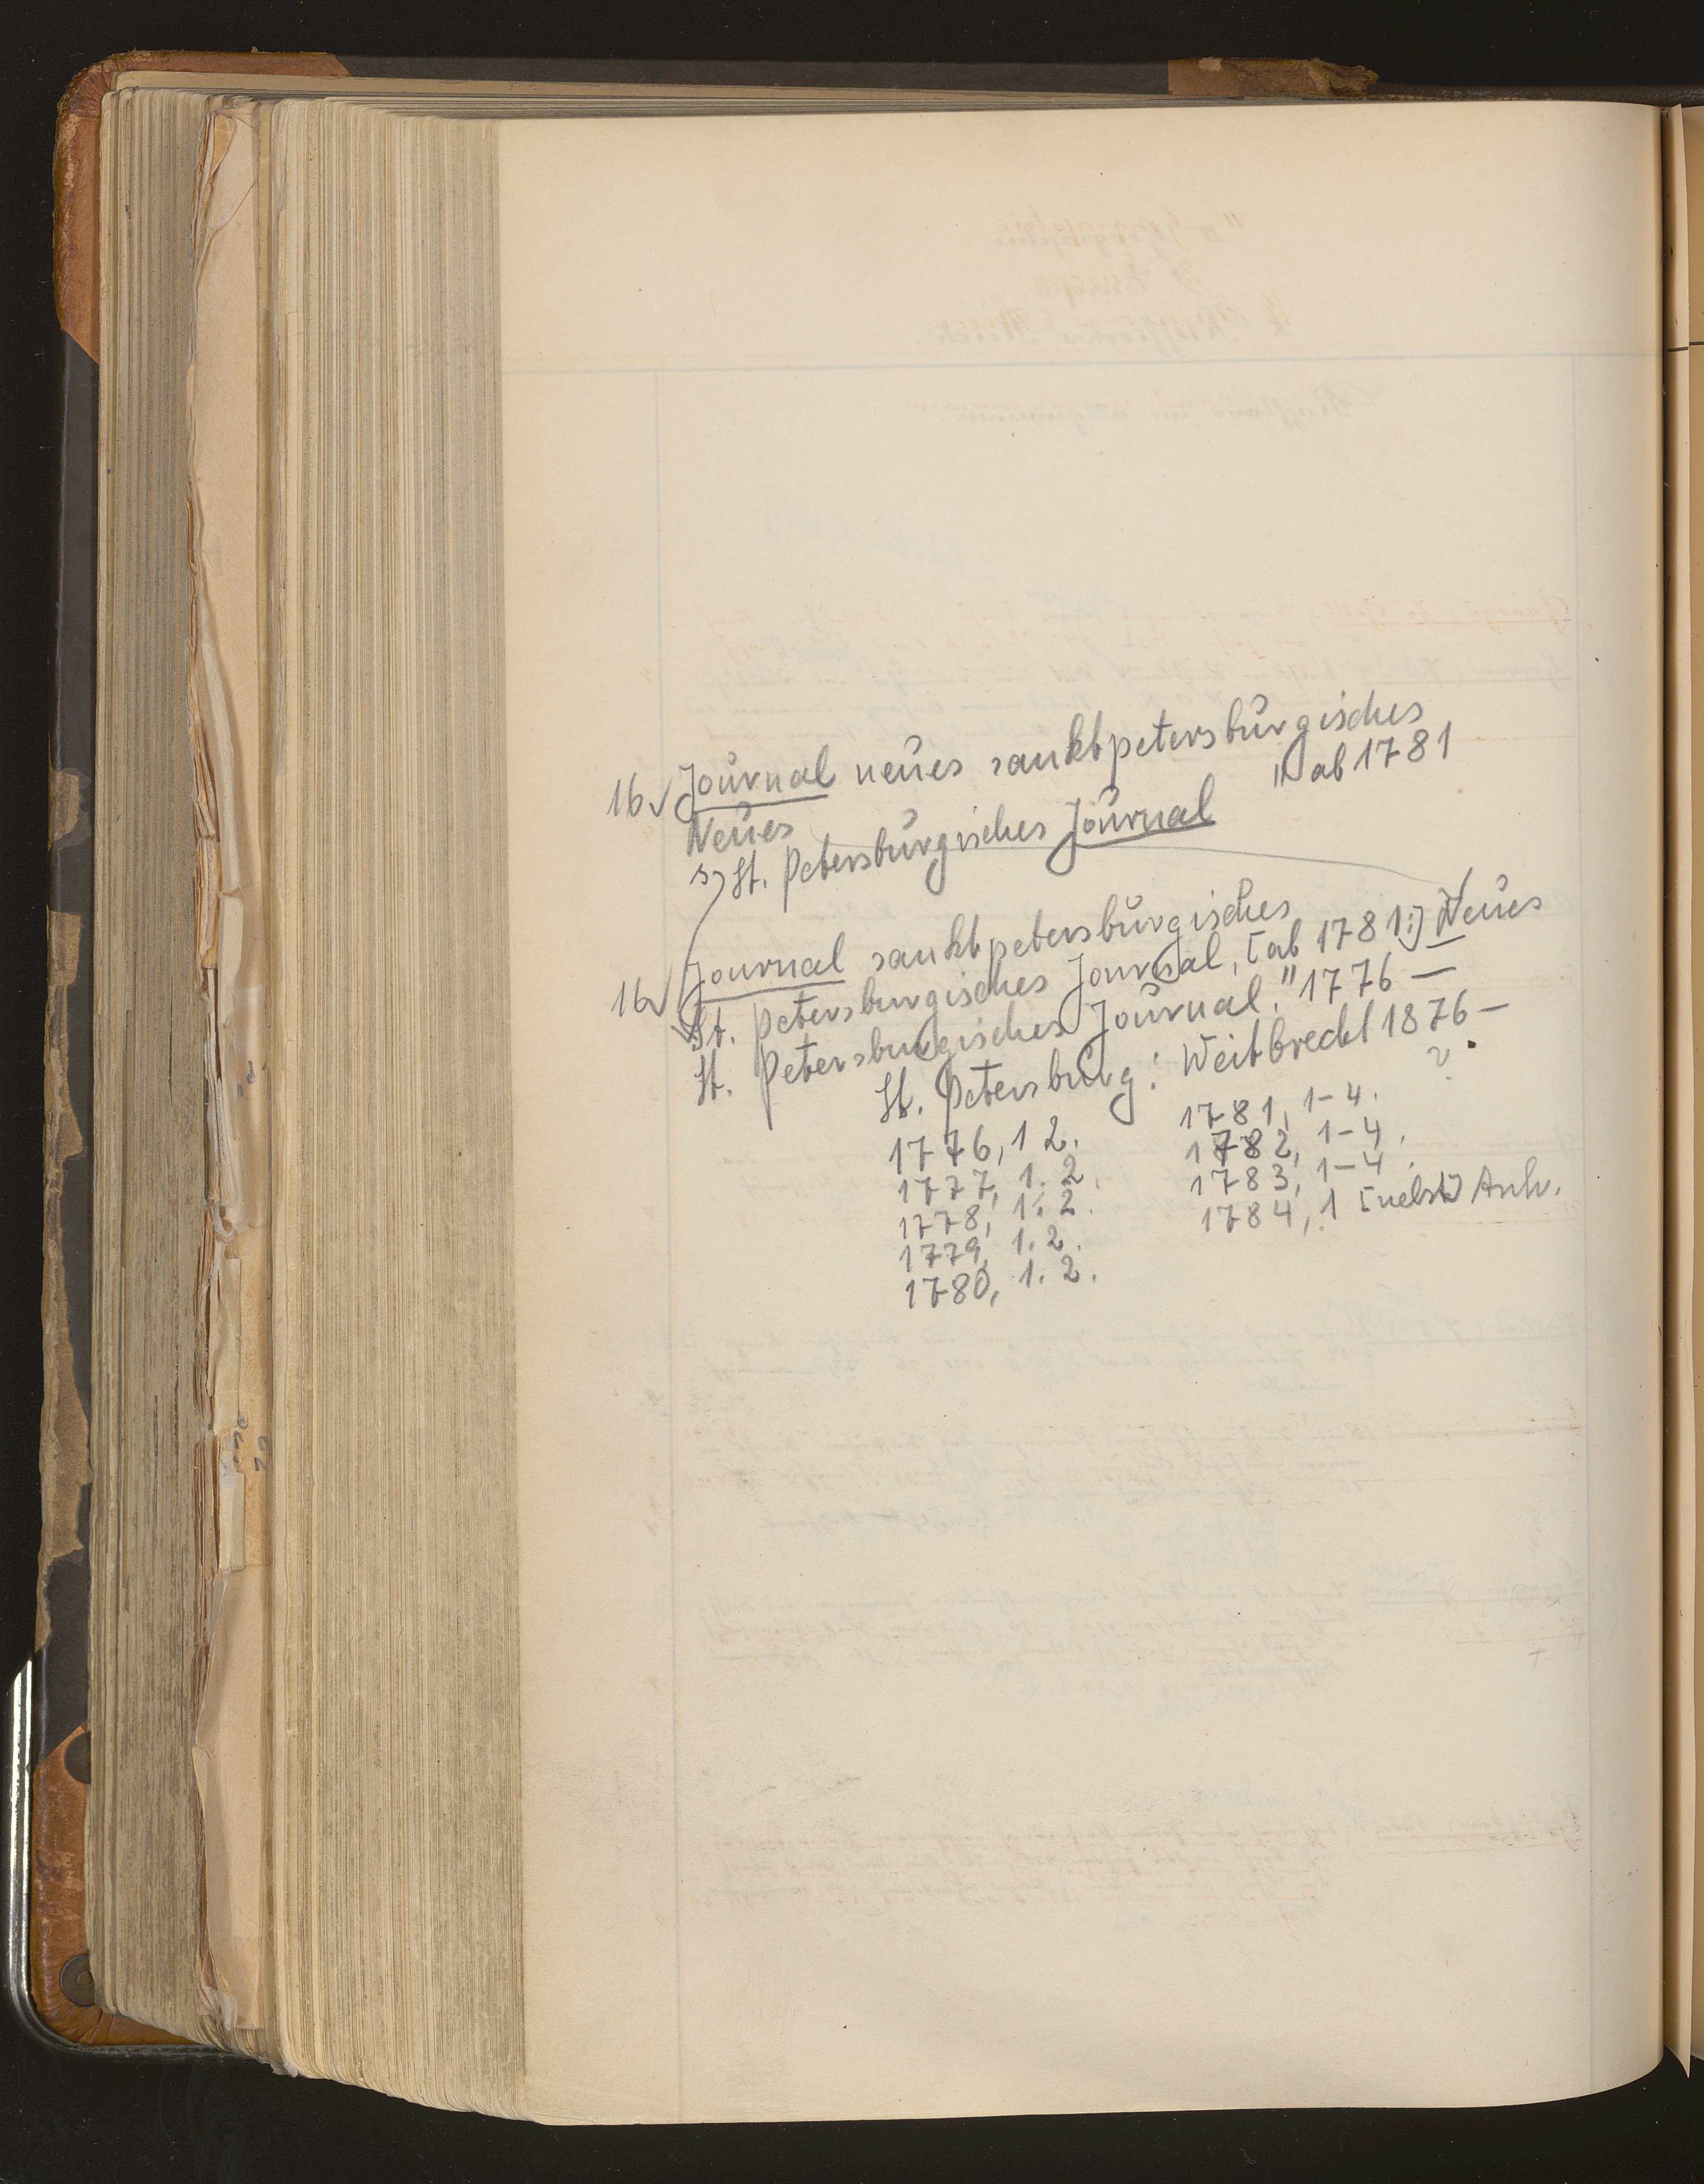 16 √ Journal neues sanktpetersburgisches
Neues
s) St. Petersburgisches Journal " ab 1781
16 √ Journal sanktpetersburgisches
St. Petersburgisches Journal, [ab 1781:] Neues
St. Petersburgisches Journal." 1776 —
St. Petersburg: Weitbrecht 1876 —
?
1776, 1 2.
1777, 1. 2.
1778, 1. 2.
1779, 1. 2.
1780, 1. 2.
1781, 1-4.
1782, 1-4.
1783, 1-4.
1784, 1 [nebst] Anh.